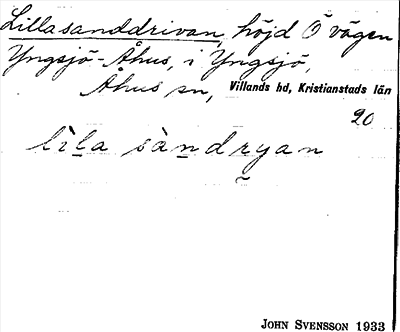 Lillasanddrivan, höjd Ö vägen
Yngsjö-Åhus, i Yngsjö,
Åhus sn, Villands hd, Kristianstads län
20
lìl̠a sàn̠drya̰n
JOHN SVENSSON 1933